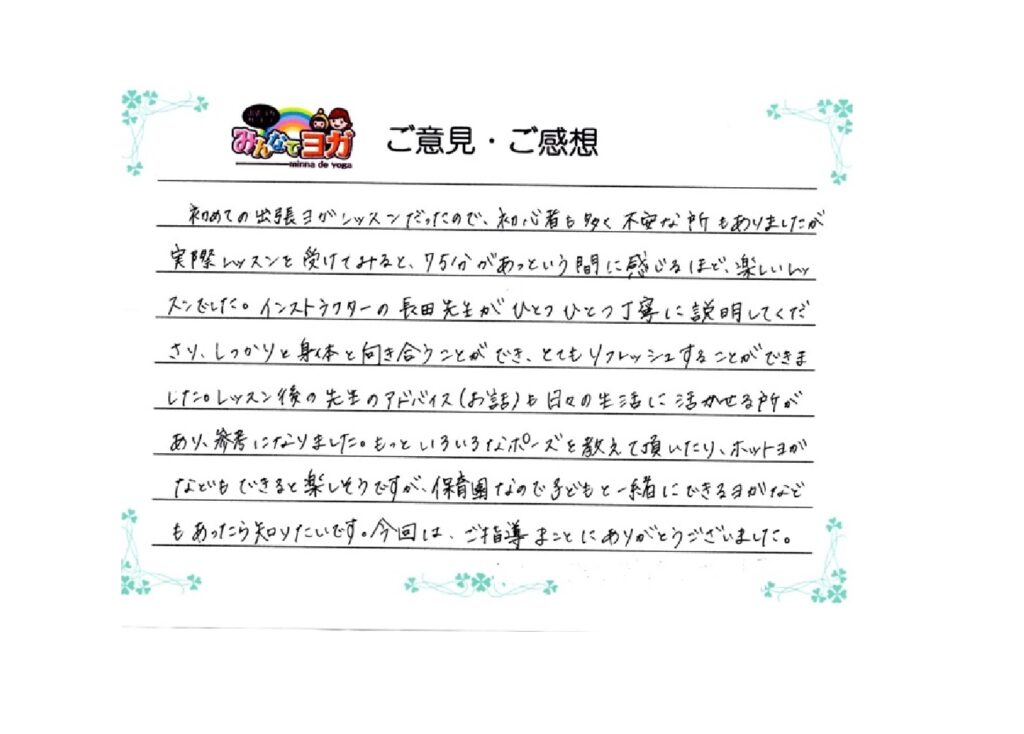 みんなでヨガ
minna de yoga
ご意見・ご感想
初めての出張ヨガレッスンだったので、初心者も多く不安な所もありましたが
実際レッスンを受けてみると、75分があっという間に感じるほど、楽しいレッ
スンでした。インストラクターの長田先生がひとつひとつ丁寧に説明してくだ
さり、しっかりと身体と向き合うことができ、とてもリフレッシュすることができま
した。レッスン後の先生のアドバイス(お話)も日々の生活に活かせる所が
あり、参考になりました。もっといろいろなポーズを教えて頂いたり、ホットヨガ
などもできると楽しそうですが、保育園なので子どもと一緒にできるヨガなど
もあったら知りたいです。今回は、ご指導まことにありがとうございました。